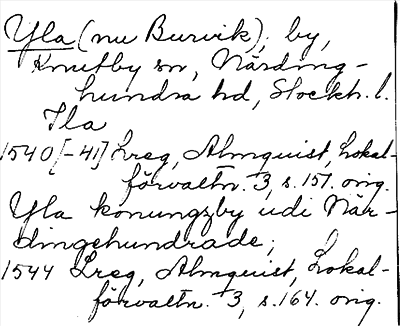 Yla (nu Burvik), by,
Knutby sn, Närding-
hundra hd, Stockh. l.
Ila
1540[-41] Lreg, Almquist, Lokal-
förvaltn. 3, s. 151. orig.
Yla konungzby udi När-
dingehundrade;
1544 Lreg, Almquist, Lokal-
förvaltn. 3, s. 164. orig.